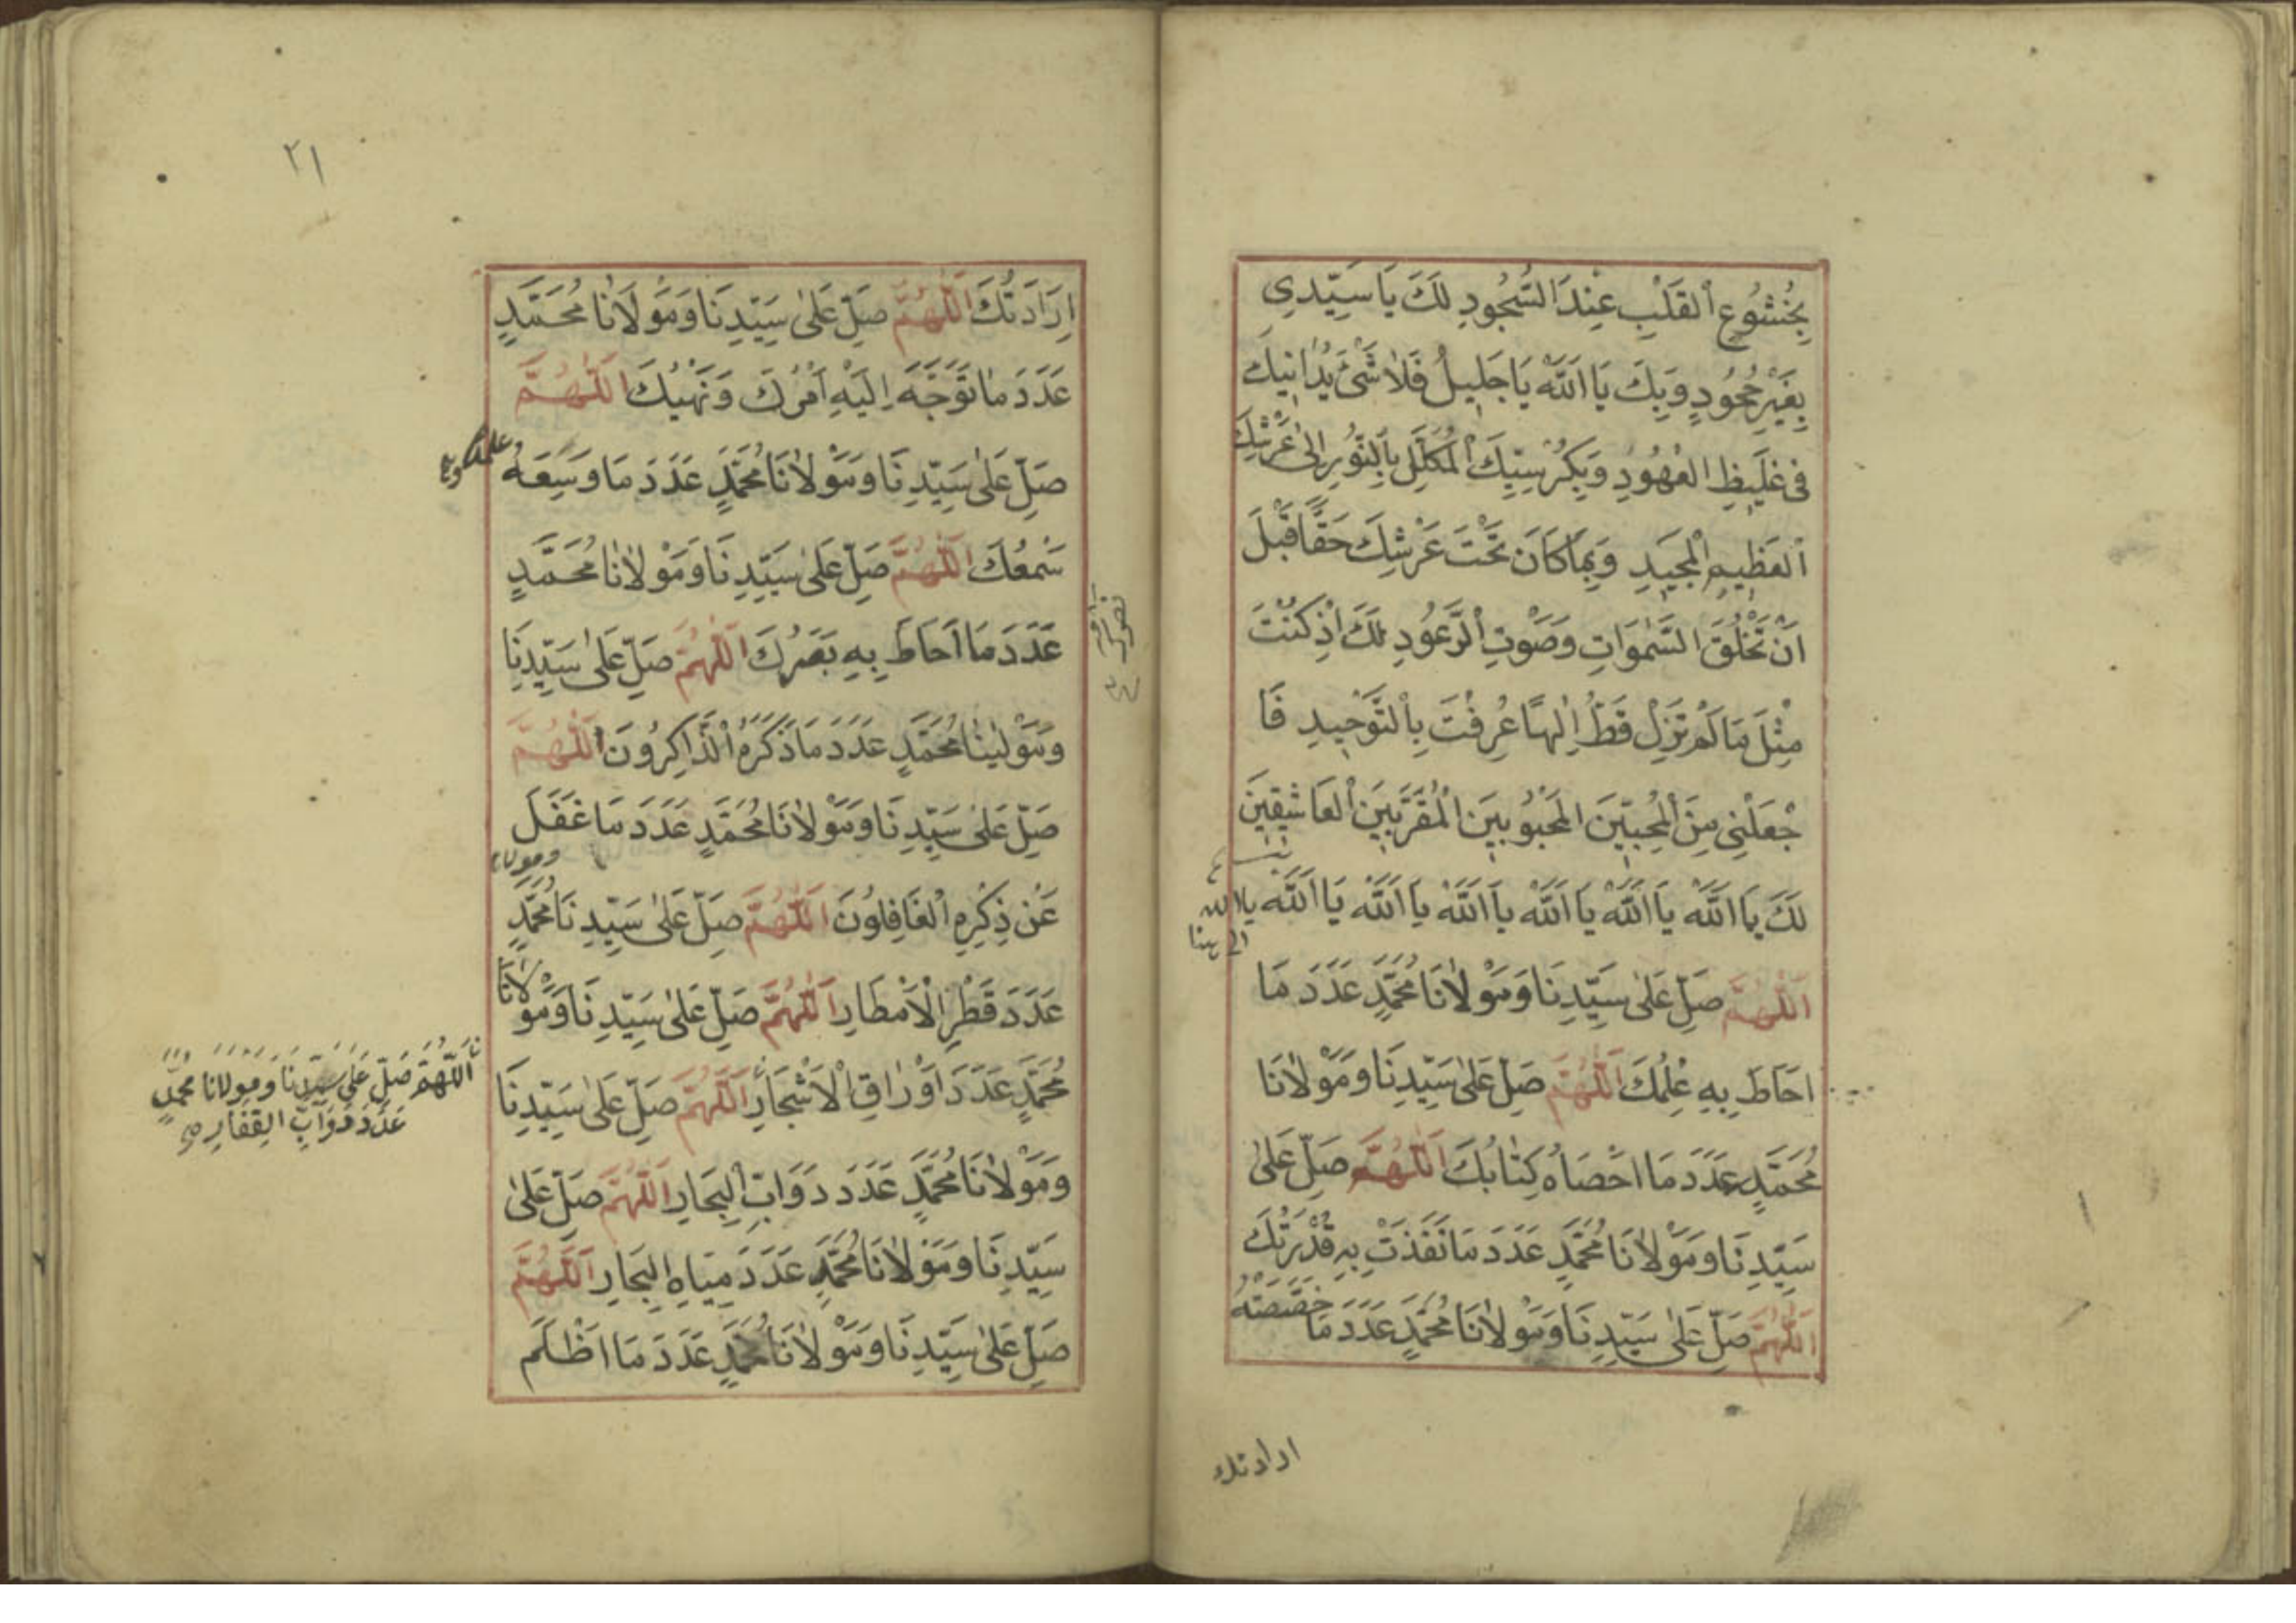 بِخُشُوعِ الْقَلْبِ عِنْدَ السُّجُودِ لَكَ يَا سَيِّدِي
بِغَيْرِ جُحُودٍ وَبِكَ يَا اَللّٰهُ يَا جَلِيلُ فَلَا شَيْءَ يُدَانِيكَ
فِي غَلِيظِ الْعُهُودِ وَبِكُرْسِيِّكَ الْمُكَلَّلِ بِالنُّورِ اِلٰى عَرْشِكَ
الْعَظِيمِ الْمَجِيدِ وَبِمَا كَانَ تَحْتَ عَرْشِكَ حَقًّا قَبْلَ
اَنْ تَخْلُقَ السَّمٰوَاتِ وَصَوْتِ الرُّعُودِ لَكَ اِذْ كُنْتَ
مِثْلَ مَا لَمْ تَزَلْ قَطُّ اِلٰهًا عُرِفْتَ بِالتَّوْحِيدِ فَا
جْعَلْنِي مِنَ الْمُحِبِّينَ الْمَحْبُوبِينَ الْمُقَرَّبِينَ الْعَاشِقِينَ
لَكَ يَا اَللّٰهُ يَا اَللّٰهُ يَا اَللّٰهُ يَا اَللّٰهُ يَا اَللّٰهُ يَا اَللّٰهُ يا الله
اَللّٰهُمَّ صَلِّ عَلٰى سَيِّدِنَا وَمَوْلَانَا مُحَمَّدٍ عَدَدَ مَا
اَحَاطَ بِهِ عِلْمُكَ اَللّٰهُمَّ صَلِّ عَلٰى سَيِّدِنَا وَمَوْلَانَا
مُحَمَّدٍ عَدَدَ مَا اَحْصَاهُ كِتَابُكَ اَللّٰهُمَّ صَلِّ عَلٰى
سَيِّدِنَا وَمَوْلَانَا مُحَمَّدٍ عَدَدَ مَا نَفَذَتْ بِهِ قُدْرَتُكَ
اَللّٰهُمَّ صَلِّ عَلٰى سَيِّدِنَا وَمَوْلَانَا مُحَمَّدٍ عَدَدَ مَا خَصَّصَتْهُ
ارادتك
٢١
اِرَادَتُكَ اَللّٰهُمَّ صَلِّ عَلٰى سَيِّدِنَا وَمَوْلَانَا مُحَمَّدٍ
عَدَدَ مَا تَوَجَّهَ اِلَيْهِ اَمْرُكَ وَنَهْيُكَ اَللّٰهُمَّ
صَلِّ عَلٰى سَيِّدِنَا وَمَوْلَانَا مُحَمَّدٍ عَدَدَ مَا وَسِعَهُ
سَمْعُكَ اَللّٰهُمَّ صَلِّ عَلٰى سَيِّدِنَا وَمَوْلَانَا مُحَمَّدٍ
عَدَدَ مَا اَحَاطَ بِهِ بَصَرُكَ اَللّٰهُمَّ صَلِّ عَلٰى سَيِّدِنَا
وَمَوْلٰينَا مُحَمَّدٍ عَدَدَ مَا ذَكَرَهُ الذَّاكِرُونَ اَللّٰهُمَّ
صَلِّ عَلٰى سَيِّدِنَا وَمَوْلَانَا مُحَمَّدٍ عَدَدَ مَا غَفَلَ
ومولانا
عَنْ ذِكْرِهِ الْغَافِلُونَ اَللّٰهُمَّ صَلِّ عَلٰى سَيِّدِنَا مُحَمَّدٍ
عَدَدَ قَطْرِ الْاَمْطَارِ اَللّٰهُمَّ صَلِّ عَلٰى سَيِّدِنَا وَمَوْلَانَا
مُحَمَّدٍ عَدَدَ اَوْرَاقِ الْاَشْجَارِ اَللّٰهُمَّ صَلِّ عَلٰى سَيِّدِنَا
وَمَوْلَانَا مُحَمَّدٍ عَدَدَ دَوَابِّ الْبِحَارِ اَللّٰهُمَّ صَلِّ عَلٰى
سَيِّدِنَا وَمَوْلَانَا مُحَمَّدٍ عَدَدَ مِيَاهِ الْبِحَارِ اَللّٰهُمَّ
صَلِّ عَلٰى سَيِّدِنَا وَمَوْلَانَا مُحَمَّدٍ عَدَدَ مَا اَظْلَمَ
اَللّٰهُمَّ صَلِّ عَلٰى سَيِّدِنَا وَمَوْلَانَا مُحَمَّدٍ
عَدَدَ دَوَابِّ الْقِفَارِ صح